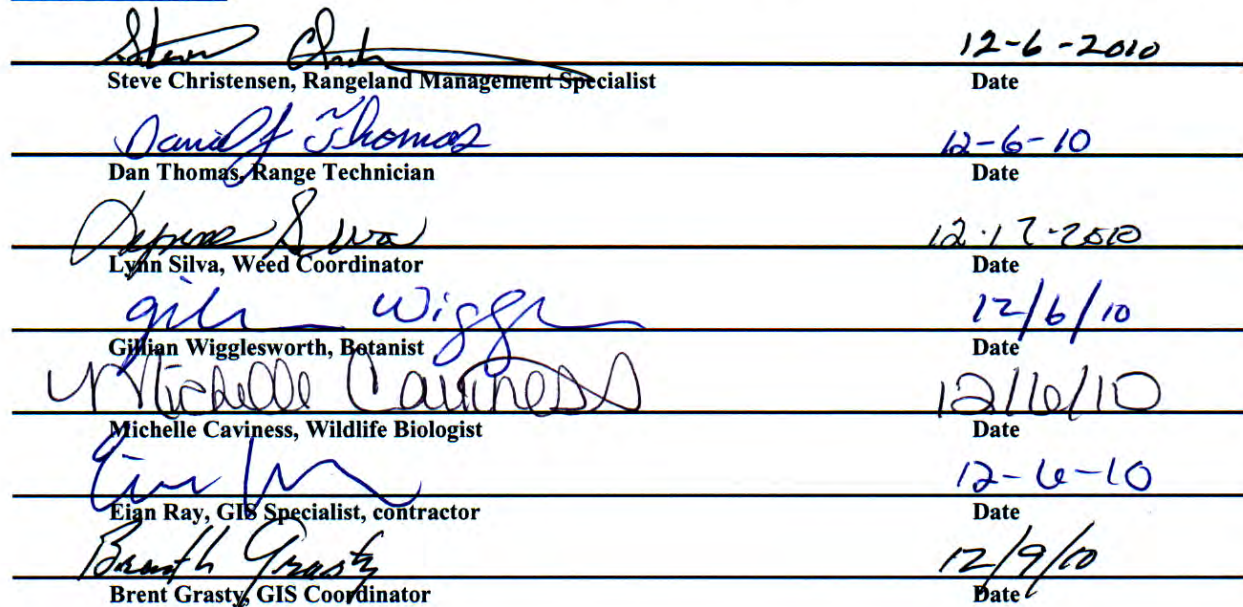 Steven Ch 12-6-2010
Steve Christensen, Rangeland Management Specialist Date
Daniel J Thomas 12-6-10
Dan Thomas, Range Technician Date
Silva 12-17-2010
Lynn Silva, Weed Coordinator Date
Gil Wigg 12/6/10
Gillian Wigglesworth, Botanist Date
Michelle Caviness 12/6/10
Michelle Caviness, Wildlife Biologist Date
12-6-10
Eian Ray, GIS Specialist, contractor Date
Brent h Grasty 12/9/10
Brent Grasty, GIS Coordinator Date